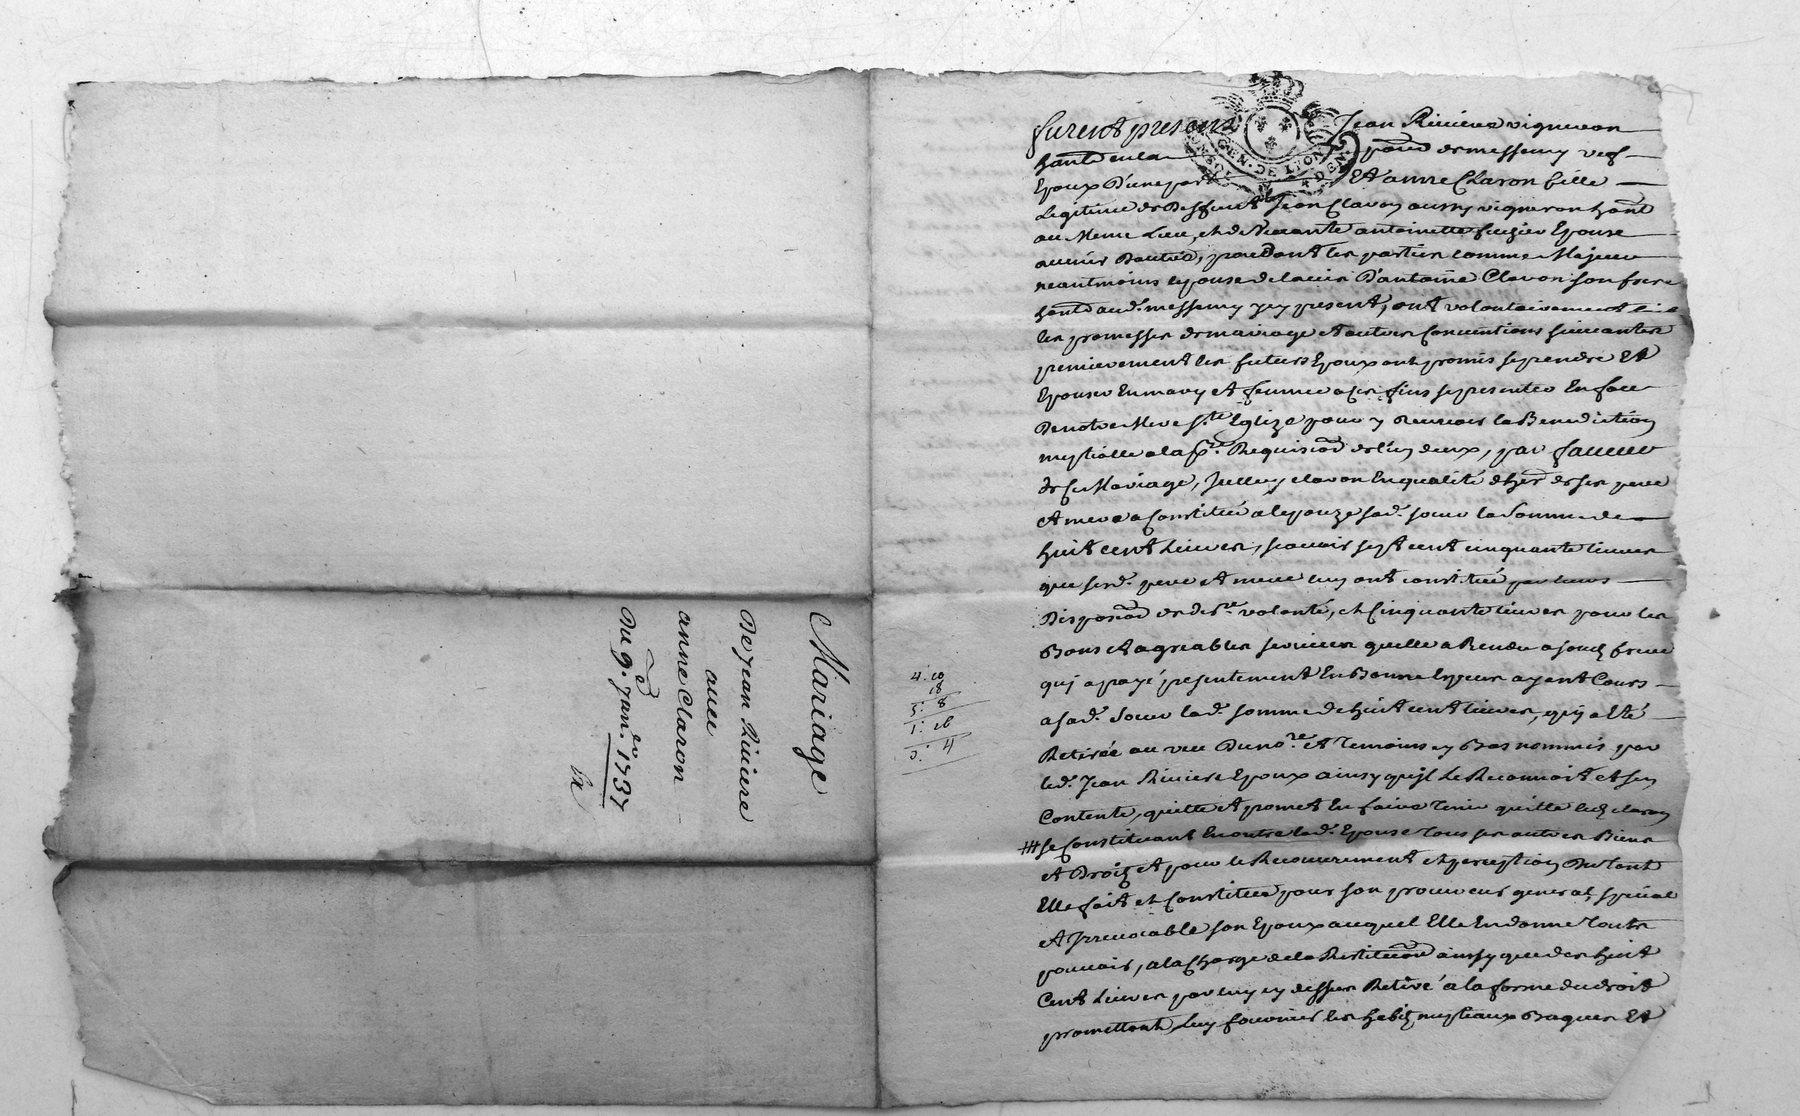 Mariage
De jean Riuiere
auec
anne Claron
Du 9. Janu.er 1737
4: 10
18
5: 8
1: 16
3: 4
GEN. DE LYON
furent presens Jean Riuiere vigneron
habitant en la parr. de messemy
Epoux D'une part Et anne Claron fille
Legitime de Deffunt Jean Claron aussy vigneron habt
au Meme Lieu, et de Viuante antoinette Epouse
auenir D'autre, procedant les parties comme Majeur
neantmoins lepouse de lauis D'antoine Claron son frere
habt aud. messemy jcy present, ont volontairement fait
les promesses de mariage et autres Conuentions suiuantes
premierement les futurs Epoux ont promis se prendre Et
Epouser En mary et femme a ces fins se presenter En face
De notre Mere Ste Eglize pour y Receuoir la Benediction
nuptialle a la pre. Requision de l'un deux, par faueur
de ce Mariage, Ledit claron En qualité d'her de ses pere
et mere a Constitué a lepouze sad. soeur la Somme de
huit cent Liures, scauoir sept cent cinquante liures
que sesd. pere et mere luy ont constitué par leurs
Disposion de dre volonté, et Cinquante liures pour les
Bons et agreables seruices quelle a Rendu a son frere
quj a payé presentement En Bonne Espece ayant Cours
a sad. Soeur lad. somme de huit cent liures, quj a Eté
Retirée au veu Du nore Et Temoins cy Bas nommés par
led. Jean Riuiere Epoux ainsy qu'jl Le Reconnoit et sen
Contente, quitte et promet En faire Tenir quitte led. claron
se Constituant En outre lad. Epouse Tous ses autres Biens
et Droits et pour le Recouurement et perception Du tout
Elle fait et Constitue pour son procureur general, special
et Jrreuocable son Epoux auquel Elle En donne Tout
pouuoir, a la Charge de la Restituon ainsy que des huit
Cent Liures par luy cy dessus Retiré a la forme du droit
promettant luy fournir les habits nuptiaux Bagues Et